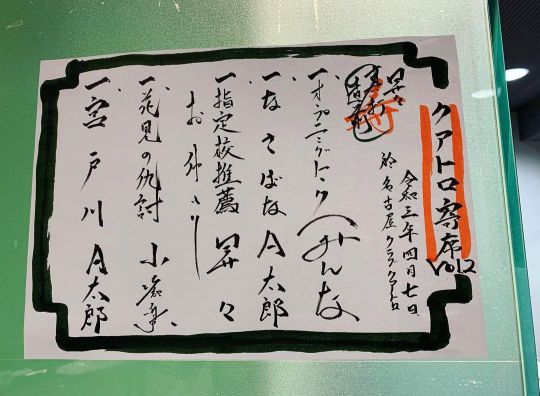 クアトロ寄席 Vol2
令和三年四月七日、
於 名古屋クラブクアトロ
昇々
一、オープニングトーク(みんな
一、なさばな A太郎
一、指定校推薦 昇々
お仲入り
一、花見の仇討 小痴楽
一、宮戸川 A太郎